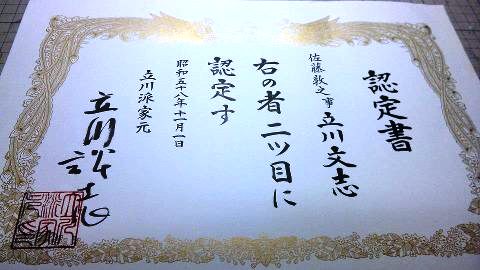 認定書
佐藤敦之事
立川文志
右の者 二ツ目に
認定す
昭和五十八年十一月一日
立川流家元
立川談志